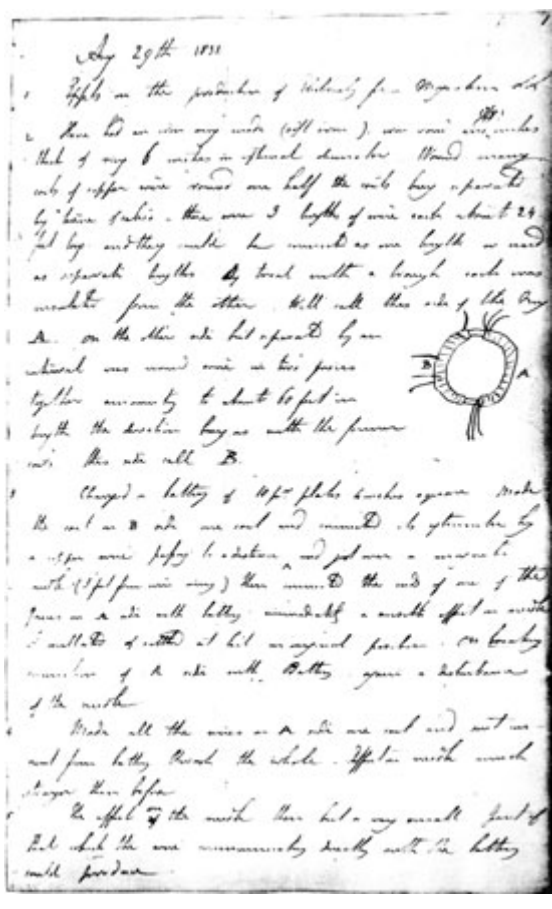 Aug 29th 1831
1 Expts on the production of Electricity from Magnetism
2 Have had an iron ring made (soft iron), iron round and inches
thick & ring 6 inches in external diameter Wound many
coils of copper wire round one half the coils being separated
by twine & calico - there were 3 lengths of wire each about 24
feet long and they could be connected as one length or used
as separate lengths By trial with a trough each was
insulated from the other. Will call this side of the Ring
A. On the other side but separated by an
interval was wound wire in two pieces
together amounting to about 60 feet in
length the direction being as with the former
coils this side call B.
3 Charged a battery of 10 pr plates 4 inches square Made
the coil on B side one coil and connected its extremities by
a copper wire passing to a distance and just over a magnetic
needle (3 feet from wire ring) then connected the ends of one of the
pieces on A side with battery immediately a sensible effect on needle
It oscillated & settled at last in original position. On breaking
connection of A side with Battery again a disturbance
of the needle
4 Made all the wires on A side one coil and sent cur-
rent from battery through the whole. Effect on needle much
stronger than before
5 The effect on the needle then but a very small part of
that which the wire communicating directly with the battery
could produce
B
A